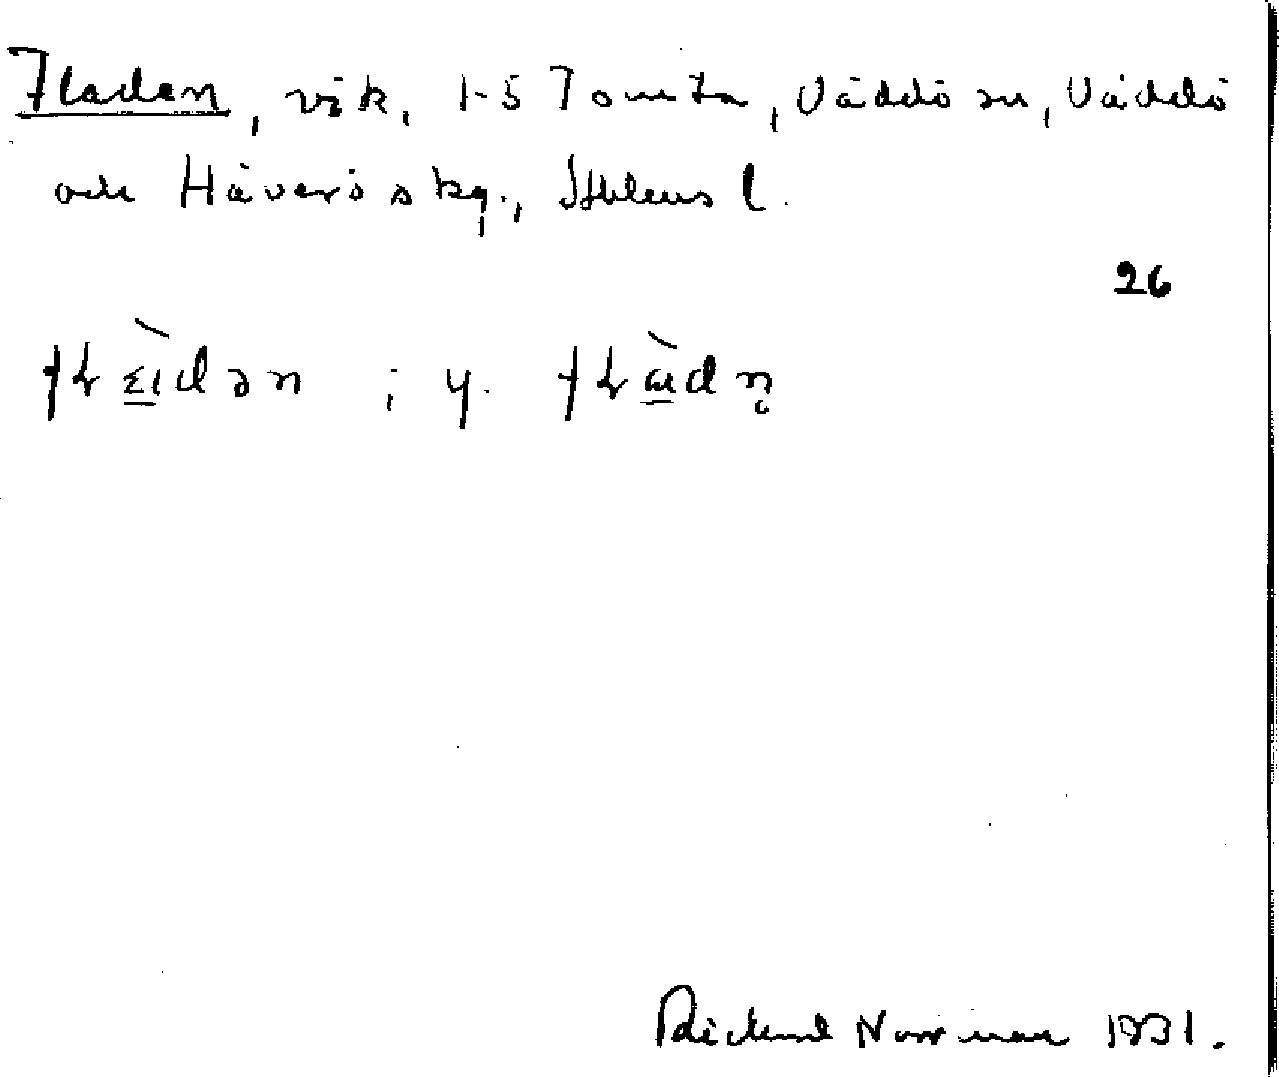 Fladen, vik, 1-5 Tomta, Väddö sn, Väddö
och Häverö skg., Sthlms l.
26
; y.
Rickard Norrman 1931.